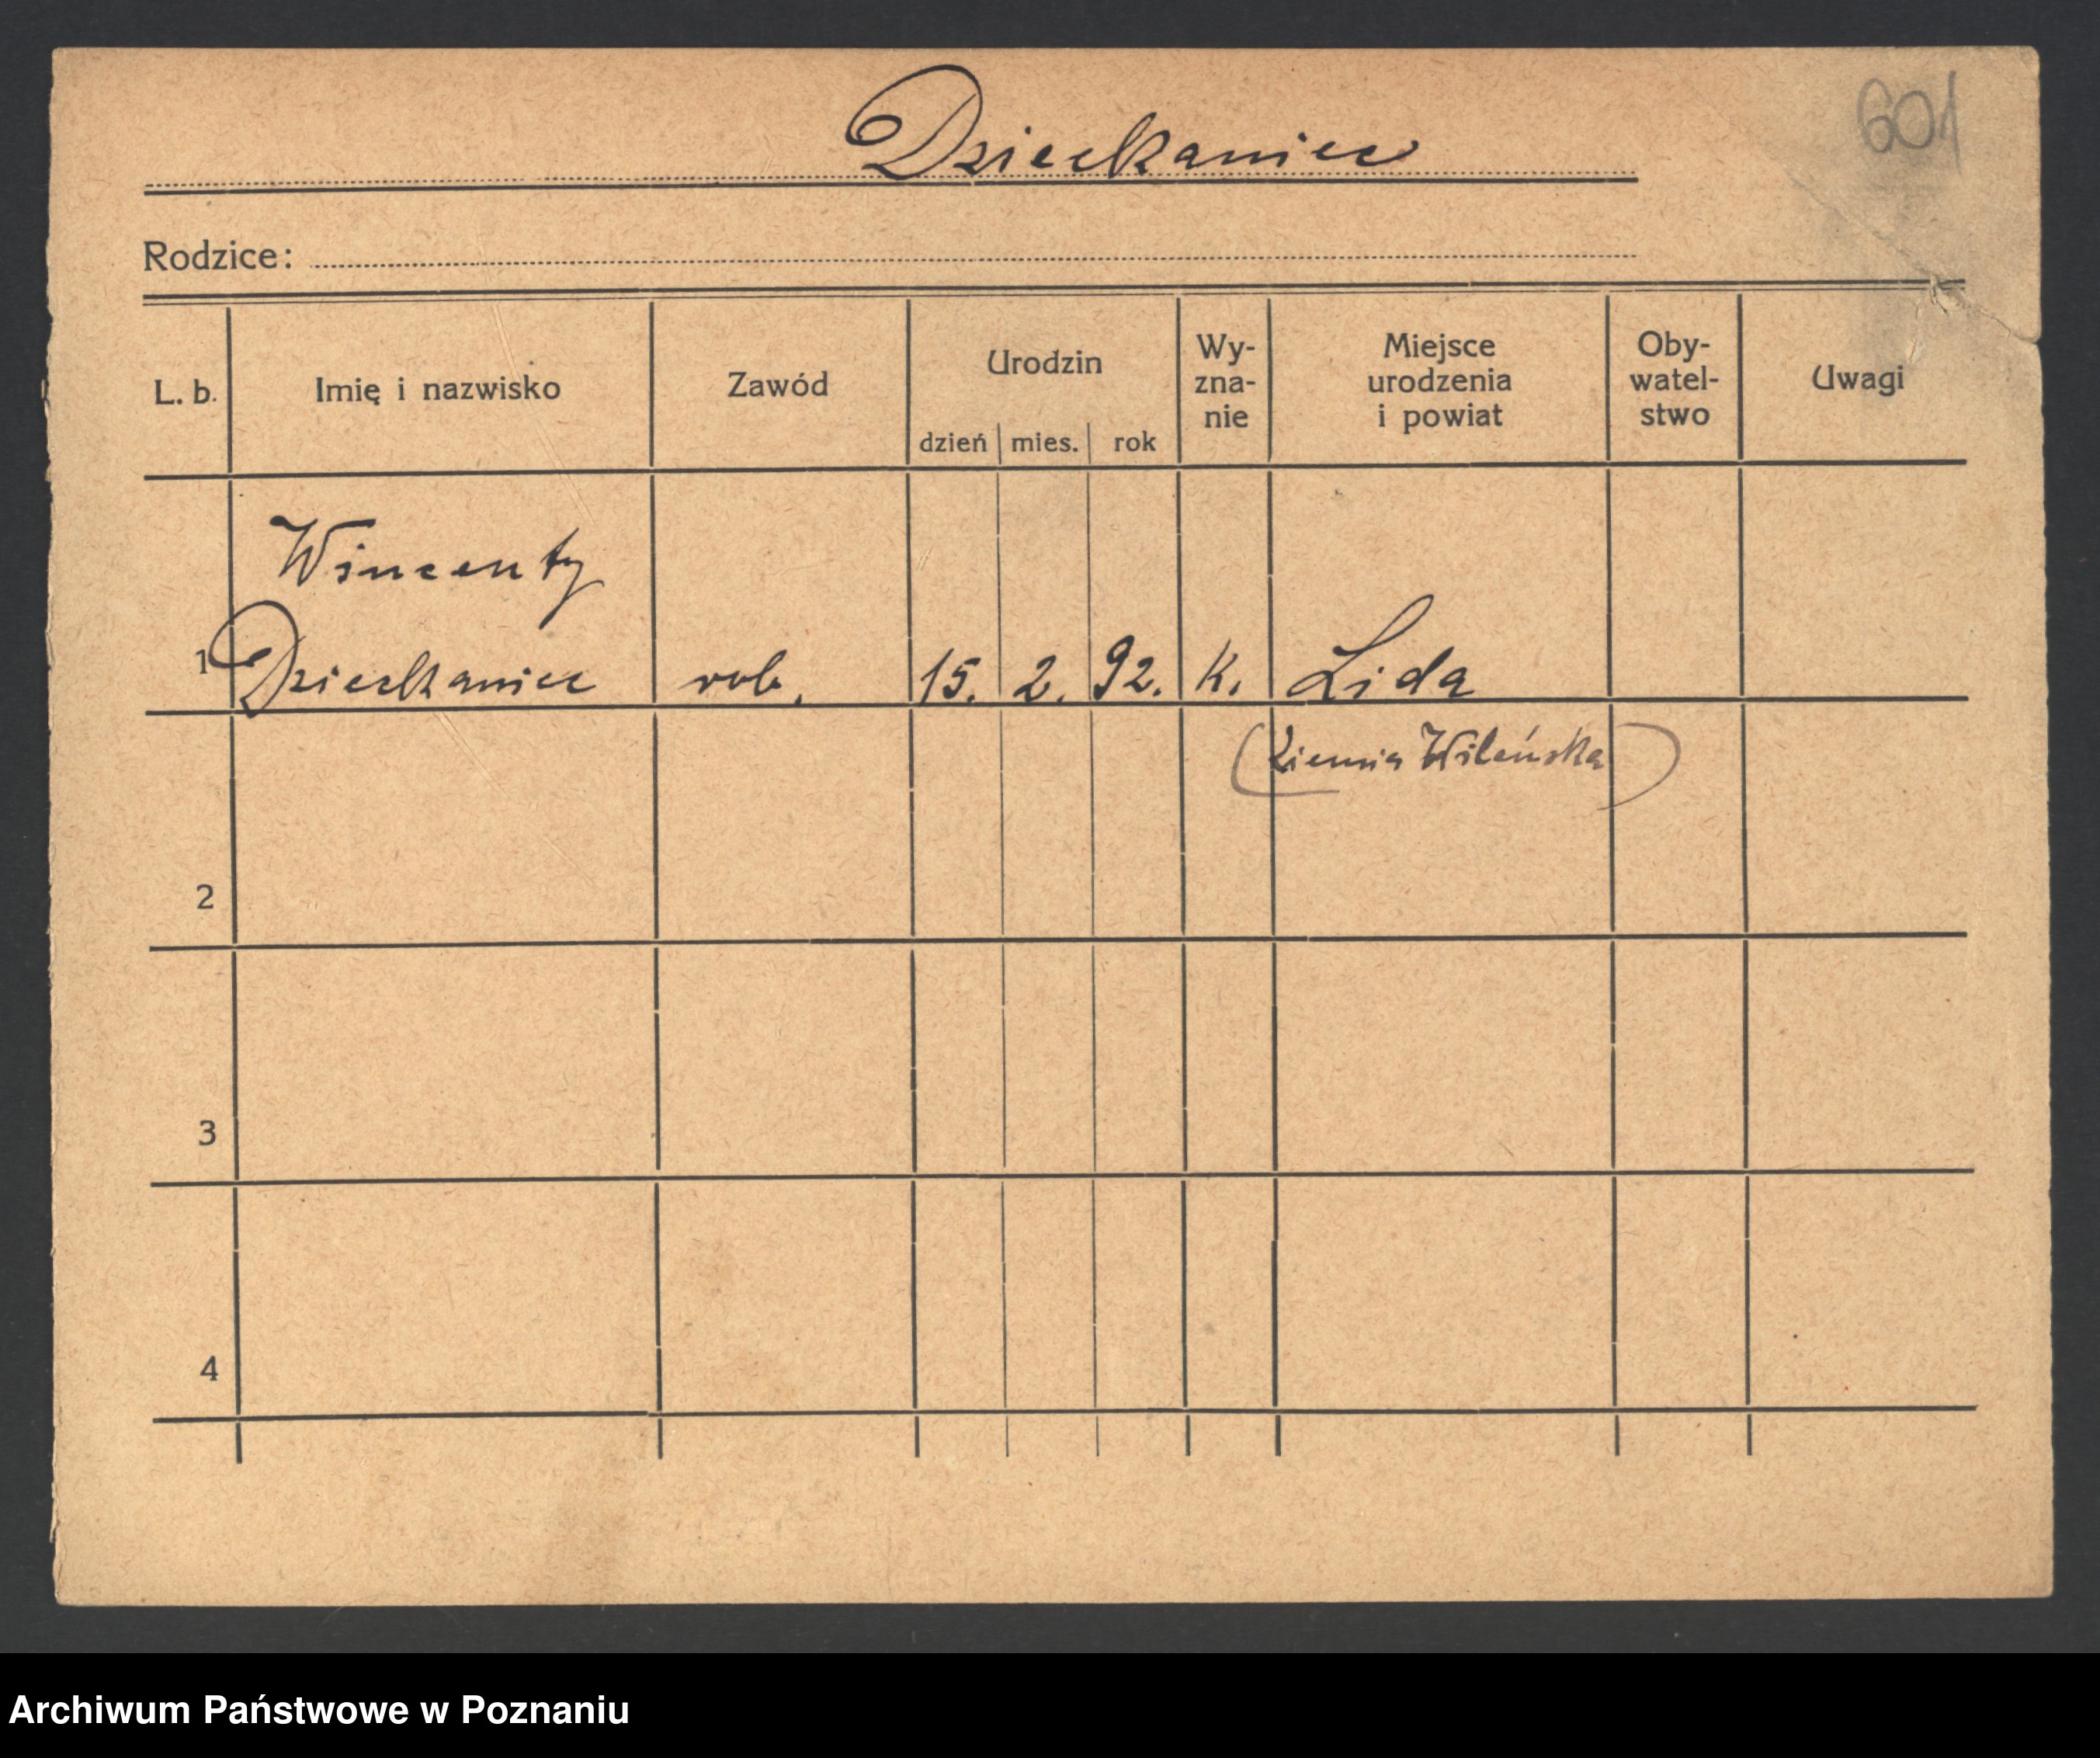 601
Dzieckaniec
Rodzice:
L. b.
Imię i nazwisko
Zawód
Urodzin
dzień mies. rok
Wy-
zna-
nie
Miejsce
urodzenia
i powiat
Oby-
watel-
stwo
Uwagi
Wincenty
1 Dzieckaniec rob. 15. 2. 92. K. Lida
(Ziemia Wileńska)
2
3
4
Archiwum Państwowe w Poznaniu